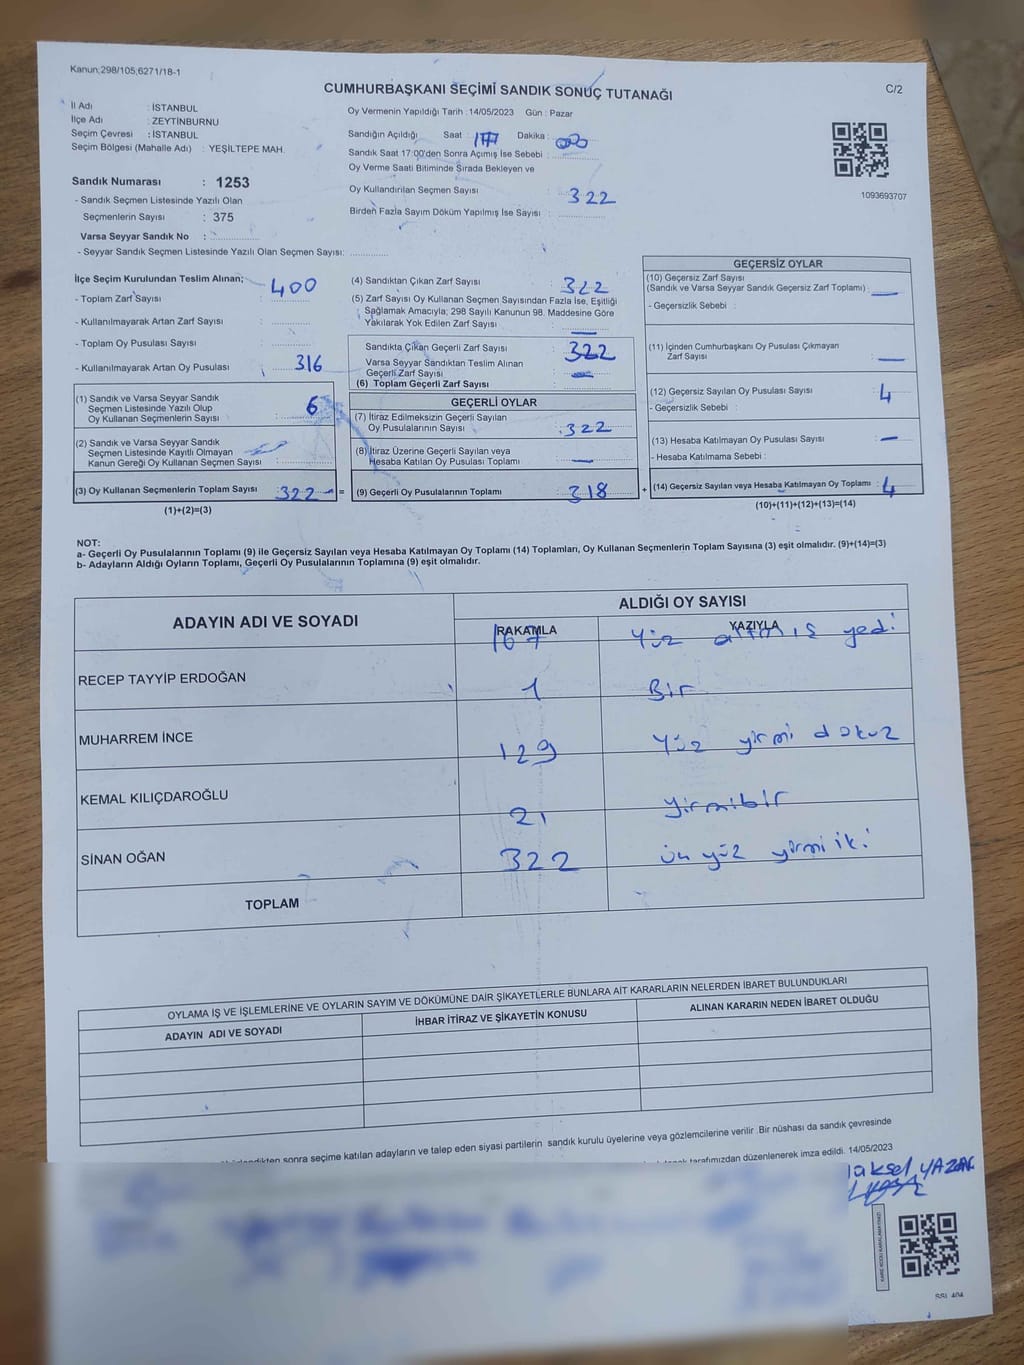 Kanun;298/105;6271/18-1
CUMHURBAŞKANI SEÇİMİ SANDIK SONUÇ TUTANAĞI
C/2
İl Adı : İSTANBUL
İlçe Adı : ZEYTİNBURNU
Seçim Çevresi : İSTANBUL
Seçim Bölgesi (Mahalle Adı) : YEŞİLTEPE MAH.
Sandık Numarası : 1253
- Sandık Seçmen Listesinde Yazılı Olan
Seçmenlerin Sayısı : 375
Varsa Seyyar Sandık No :
- Seyyar Sandık Seçmen Listesinde Yazılı Olan Seçmen Sayısı:
Oy Vermenin Yapıldığı Tarih : 14/05/2023 Gün : Pazar
Sandığın Açıldığı Saat : Dakika :
Sandık Saat 17:00'den Sonra Açımış İse Sebebi :
Oy Verme Saati Bitiminde Sırada Bekleyen ve
Oy Kullandırılan Seçmen Sayısı : 322
Birden Fazla Sayım Döküm Yapılmış İse Sayısı :
1093693707
İlçe Seçim Kurulundan Teslim Alınan; 400
- Toplam Zarf Sayısı :
- Kullanılmayarak Artan Zarf Sayısı :
- Toplam Oy Pusulası Sayısı :
- Kullanılmayarak Artan Oy Pusulası : 316
(1) Sandık ve Varsa Seyyar Sandık
Seçmen Listesinde Yazılı Olup
Oy Kullanan Seçmenlerin Sayısı : 6
(2) Sandık ve Varsa Seyyar Sandık
Seçmen Listesinde Kayıtlı Olmayan
Kanun Gereği Oy Kullanan Seçmen Sayısı :
(3) Oy Kullanan Seçmenlerin Toplam Sayısı : 322 =
(1)+(2)=(3)
(4) Sandıktan Çıkan Zarf Sayısı : 322
(5) Zarf Sayısı Oy Kullanan Seçmen Sayısından Fazla İse, Eşitliği
Sağlamak Amacıyla; 298 Sayılı Kanunun 98. Maddesine Göre
Yakılarak Yok Edilen Zarf Sayısı : —
Sandıkta Çıkan Geçerli Zarf Sayısı : 322
Varsa Seyyar Sandıktan Teslim Alınan
Geçerli Zarf Sayısı : —
(6) Toplam Geçerli Zarf Sayısı :
GEÇERLİ OYLAR
(7) İtiraz Edilmeksizin Geçerli Sayılan
Oy Pusulalarının Sayısı : 322
(8) İtiraz Üzerine Geçerli Sayılan veya
Hesaba Katılan Oy Pusulası Toplamı : —
(9) Geçerli Oy Pusulalarının Toplamı : 318 +
GEÇERSİZ OYLAR
(10) Geçersiz Zarf Sayısı
(Sandık ve Varsa Seyyar Sandık Geçersiz Zarf Toplamı) : —
- Geçersizlik Sebebi :
(11) İçinden Cumhurbaşkanı Oy Pusulası Çıkmayan
Zarf Sayısı : —
(12) Geçersiz Sayılan Oy Pusulası Sayısı : 4
- Geçersizlik Sebebi :
(13) Hesaba Katılmayan Oy Pusulası Sayısı : —
- Hesaba Katılmama Sebebi :
(14) Geçersiz Sayılan veya Hesaba Katılmayan Oy Toplamı : 4
(10)+(11)+(12)+(13)=(14)
NOT:
a- Geçerli Oy Pusulalarının Toplamı (9) ile Geçersiz Sayılan veya Hesaba Katılmayan Oy Toplamı (14) Toplamları, Oy Kullanan Seçmenlerin Toplam Sayısına (3) eşit olmalıdır. (9)+(14)=(3)
b- Adayların Aldığı Oyların Toplamı, Geçerli Oy Pusulalarının Toplamına (9) eşit olmalıdır.
ADAYIN ADI VE SOYADI
ALDIĞI OY SAYISI
RAKAMLA YAZIYLA
167 Yüz altmış yedi
RECEP TAYYİP ERDOĞAN
1 Bir
MUHARREM İNCE
129 Yüz yirmi dokuz
KEMAL KILIÇDAROĞLU
21 yirmibir
SİNAN OĞAN
322 üç yüz yirmi iki
TOPLAM
OYLAMA İŞ VE İŞLEMLERİNE VE OYLARIN SAYIM VE DÖKÜMÜNE DAİR ŞİKAYETLERLE BUNLARA AİT KARARLARIN NELERDEN İBARET BULUNDUKLARI
ADAYIN ADI VE SOYADI
İHBAR İTİRAZ VE ŞİKAYETİN KONUSU
ALINAN KARARIN NEDEN İBARET OLDUĞU
sonra seçime katılan adayların ve talep eden siyasi partilerin sandık kurulu üyelerine veya gözlemcilerine verilir .Bir nüshası da sandık çevresinde
tarafımızdan düzenlenerek imza edildi. 14/05/2023
YAZAN